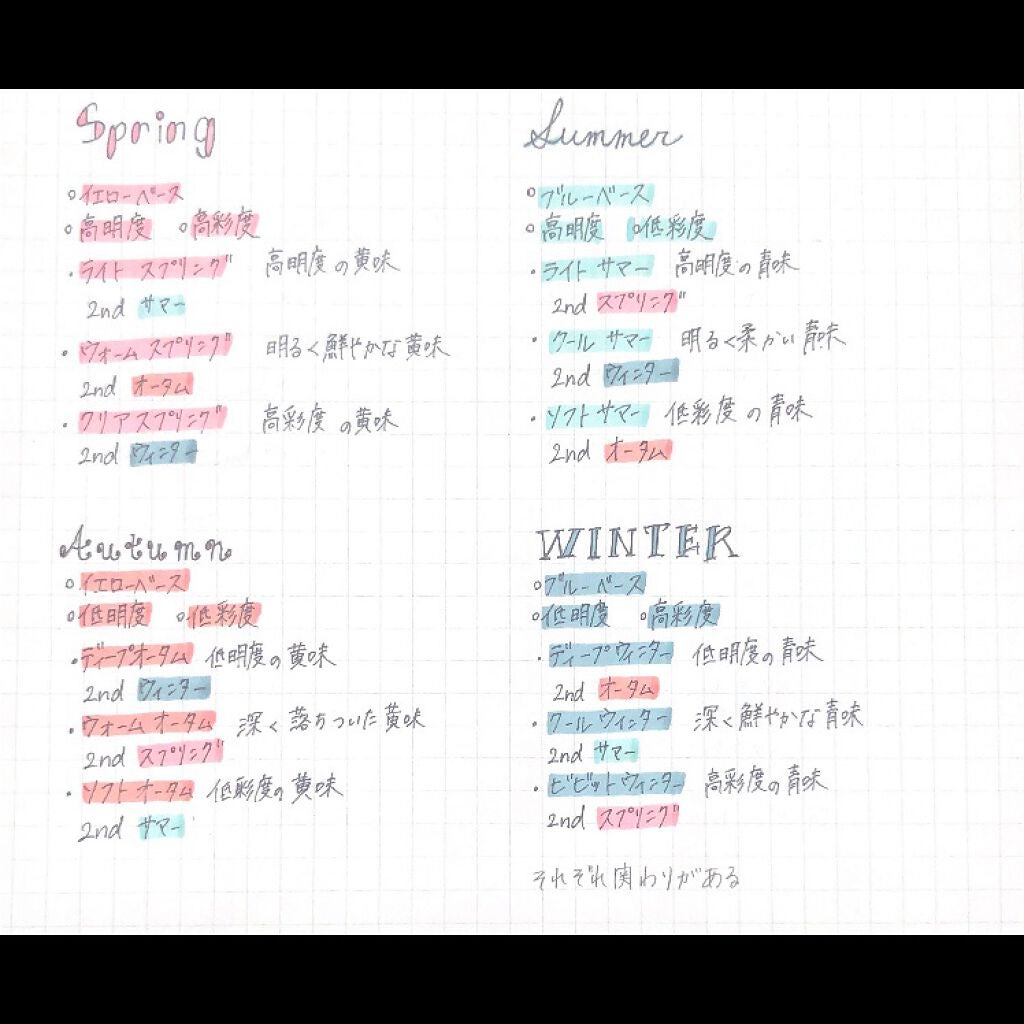 Spring
○イエローベース
○高明度 ○高彩度
・ライト スプリング 高明度の黄味
2nd サマー
・ウォーム スプリング 明るく鮮やかな黄味
2nd オータム
・クリアスプリング 高彩度の黄味
2nd ウィンター
Summer
○ブルーベース
○高明度 ○低彩度
・ライト サマー 高明度の青味
2nd スプリング
・クール サマー 明るく柔かい青味
2nd ウィンター
・ソフト サマー 低彩度の青味
2nd オータム
Autumn
○イエローベース
○低明度 ○低彩度
・ディープオータム 低明度の黄味
2nd ウィンター
・ウォーム オータム 深く落ちついた黄味
2nd スプリング
・ソフト オータム 低彩度の黄味
2nd サマー
WINTER
○ブルーベース
○低明度 ○高彩度
・ディープウィンター 低明度の青味
2nd オータム
・クール ウィンター 深く鮮やかな青味
2nd サマー
・ビビットウィンター 高彩度の青味
2nd スプリング
それぞれ関わりがある